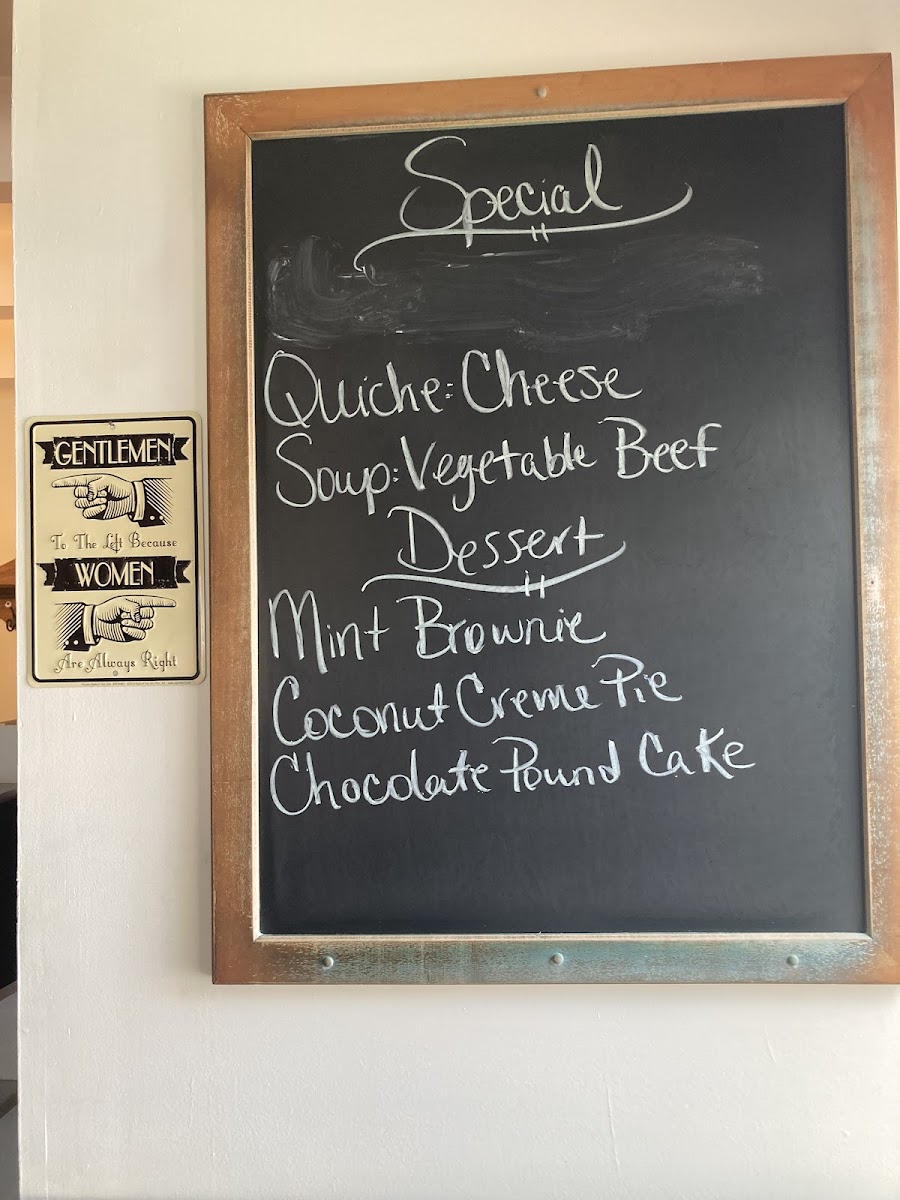 Special
Quiche: Cheese
Soup: Vegetable Beef
Dessert
Mint Brownie
Coconut Creme Pie
Chocolate Pound Cake
GENTLEMEN
To The Left Because
WOMEN
Are Always Right